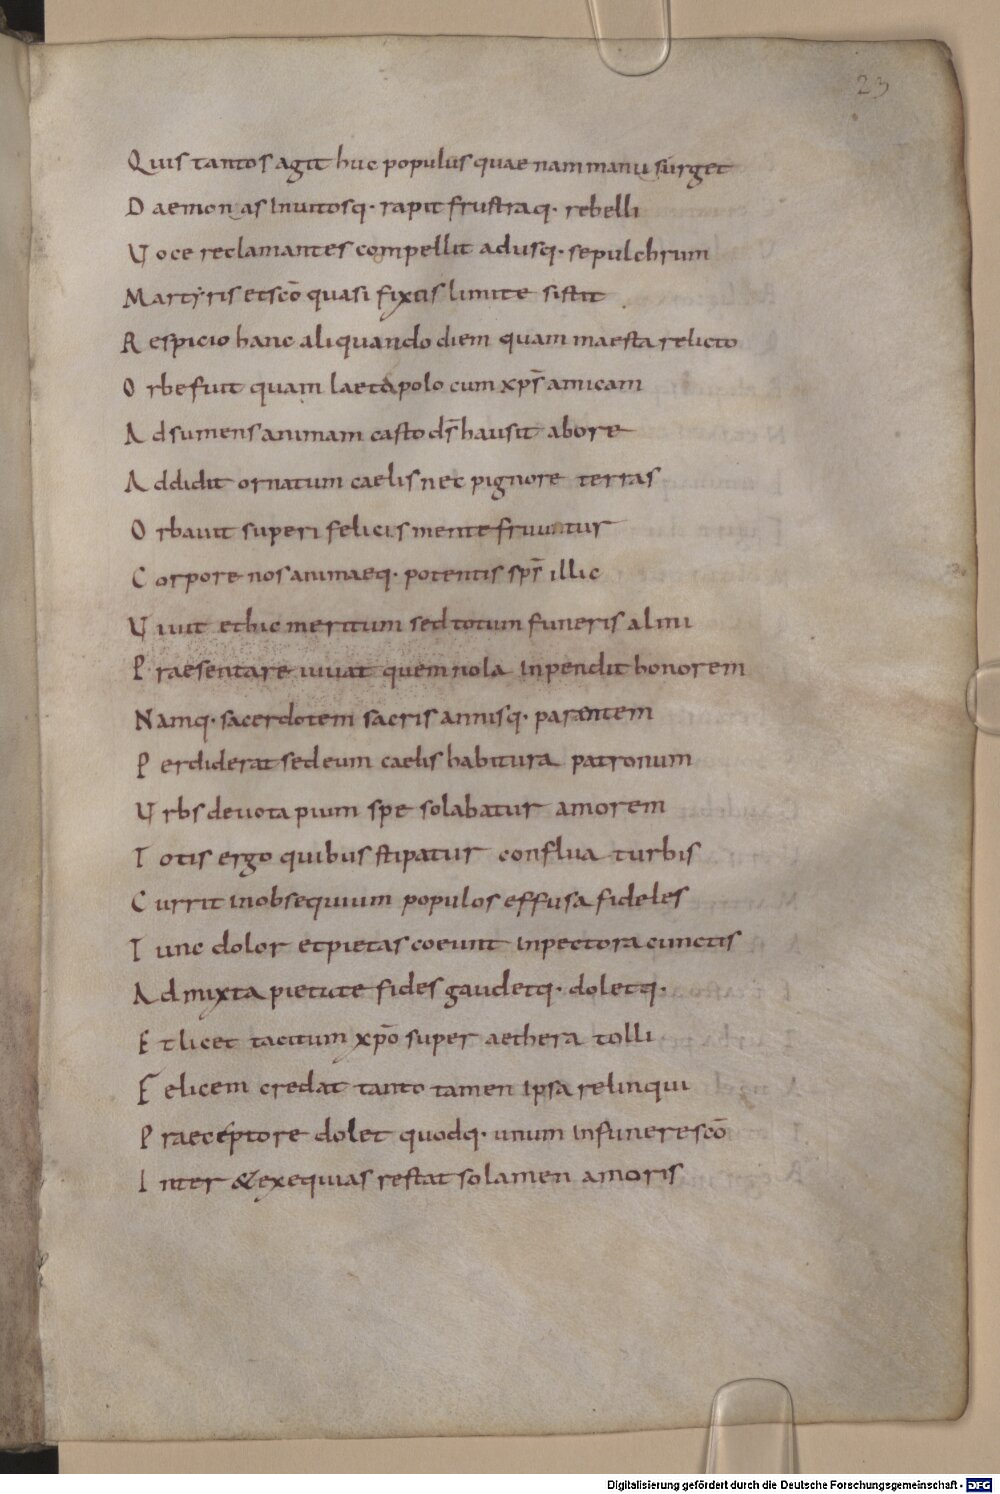 23
Quis tantos agit huc populus quae nam manu surget
Daemonas Inuitosq· rapit frustraq· rebelli
Voce reclamantes compellit adusq· sepulchrum
Martyris etscō quasi fixus limite sistit
Respicio hanc aliquando diem quam maesta relicto
Orbe fuit quam laeta polo cum xp̄s amicam
Adsumens animam casto d̄s hausit abore
Addidit ornatum caelis nec pignore terras
Orbauit superi felicis mente fruuntur
Corpore nos animaeq· potentis sp̄s illic
Viuit ethic meritum sed totum funeris almi
Praesentare uiuat quem nola Inpendit honorem
Namq· sacerdotem sacris annisq· parantem
Perdiderat sedeum caelis habitura patronum
Vrbs deuota pium spe solabatur amorem
Totis ergo quibus stipatur conflua turbis
Currit Inobsequium populos effusa fideles
Tunc dolor etpietas coeunt Inpectora cunctis
Admixta pietate fides gaudetq· doletq·
Etlicet tacitum xp̄o super aethera tolli
Felicem credat tanto tamen Ipsa relinqui
Praeceptore dolet quodq· unum Infunerescō
Inter &exequias restat solamen amoris
Digitalisierung gefördert durch die Deutsche Forschungsgemeinschaft - DFG